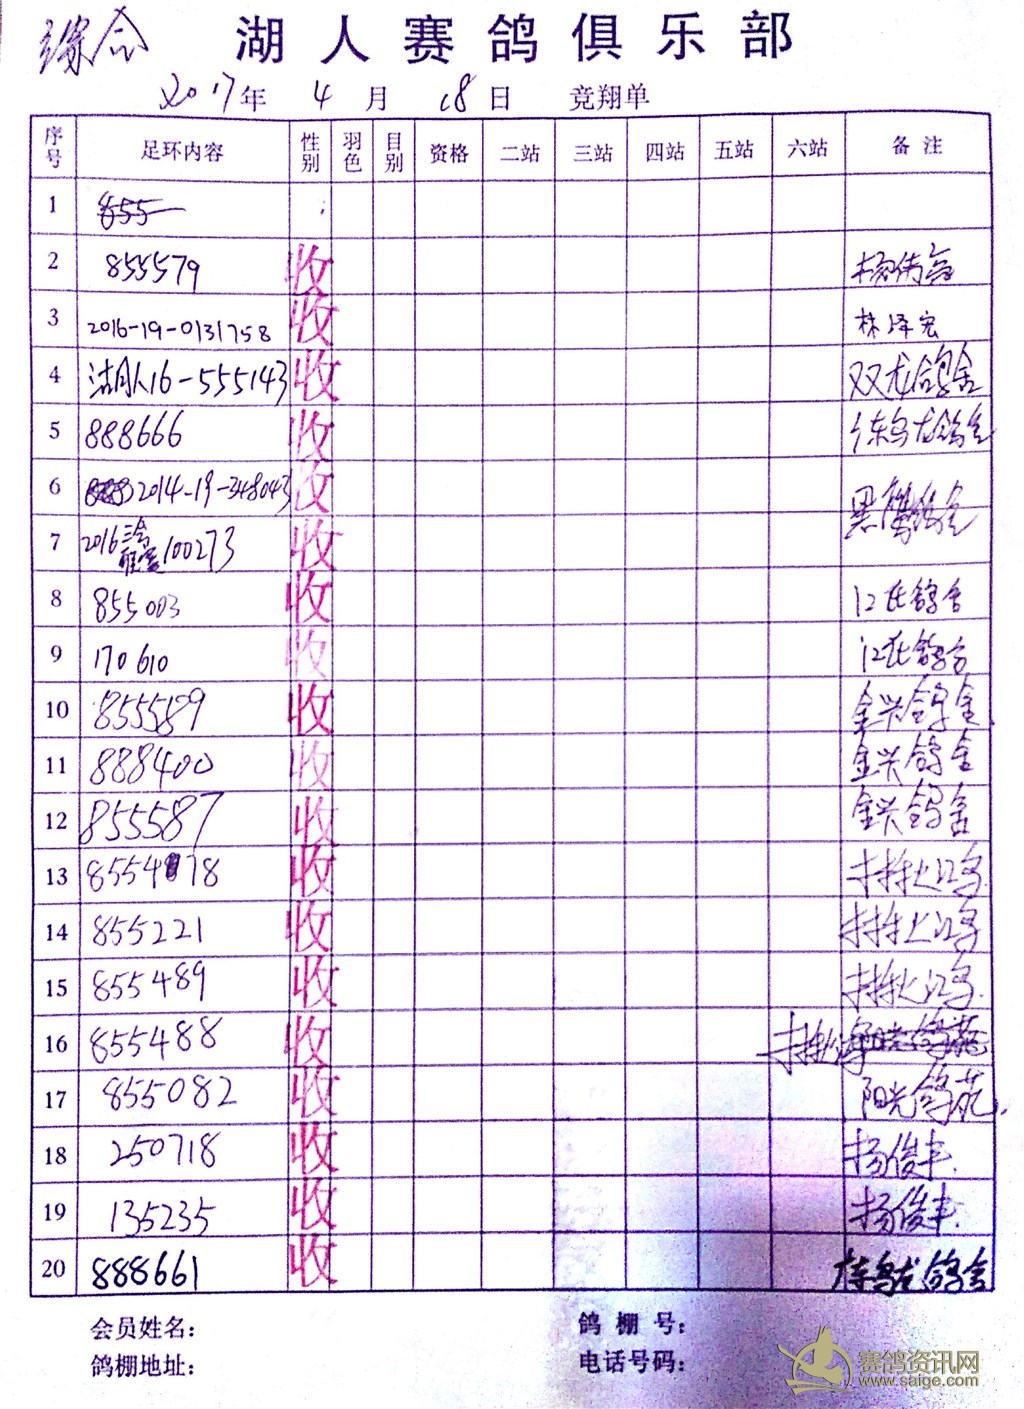 湖人赛鸽俱乐部
2017年 4月 18日 竞翔单
序号 足环内容 性别 羽色 目别 资格 二站 三站 四站 五站 六站 备注
1 855
2 855579 收
3 2016-19-0131758 收 林泽宏
4 湖人16-555143 收 双龙鸽舍
5 888666 收
6 2014-19-348043 收
7 2016 100273 收 黑鹰鸽舍
8 855003 收 江氏鸽舍
9 170610 收 江氏鸽舍
10 855589 收 金兴鸽舍
11 888400 收 金兴鸽舍
12 855587 收 金兴鸽舍
13 855478 收
14 855221 收
15 855489 收
16 855488 收
17 855082 收 阳光鸽苑
18 250718 收 杨俊丰
19 135235 收 杨俊丰
20 888661 收 鸽舍
会员姓名： 鸽棚号：
鸽棚地址： 电话号码：
赛鸽资讯网
www.saige.com